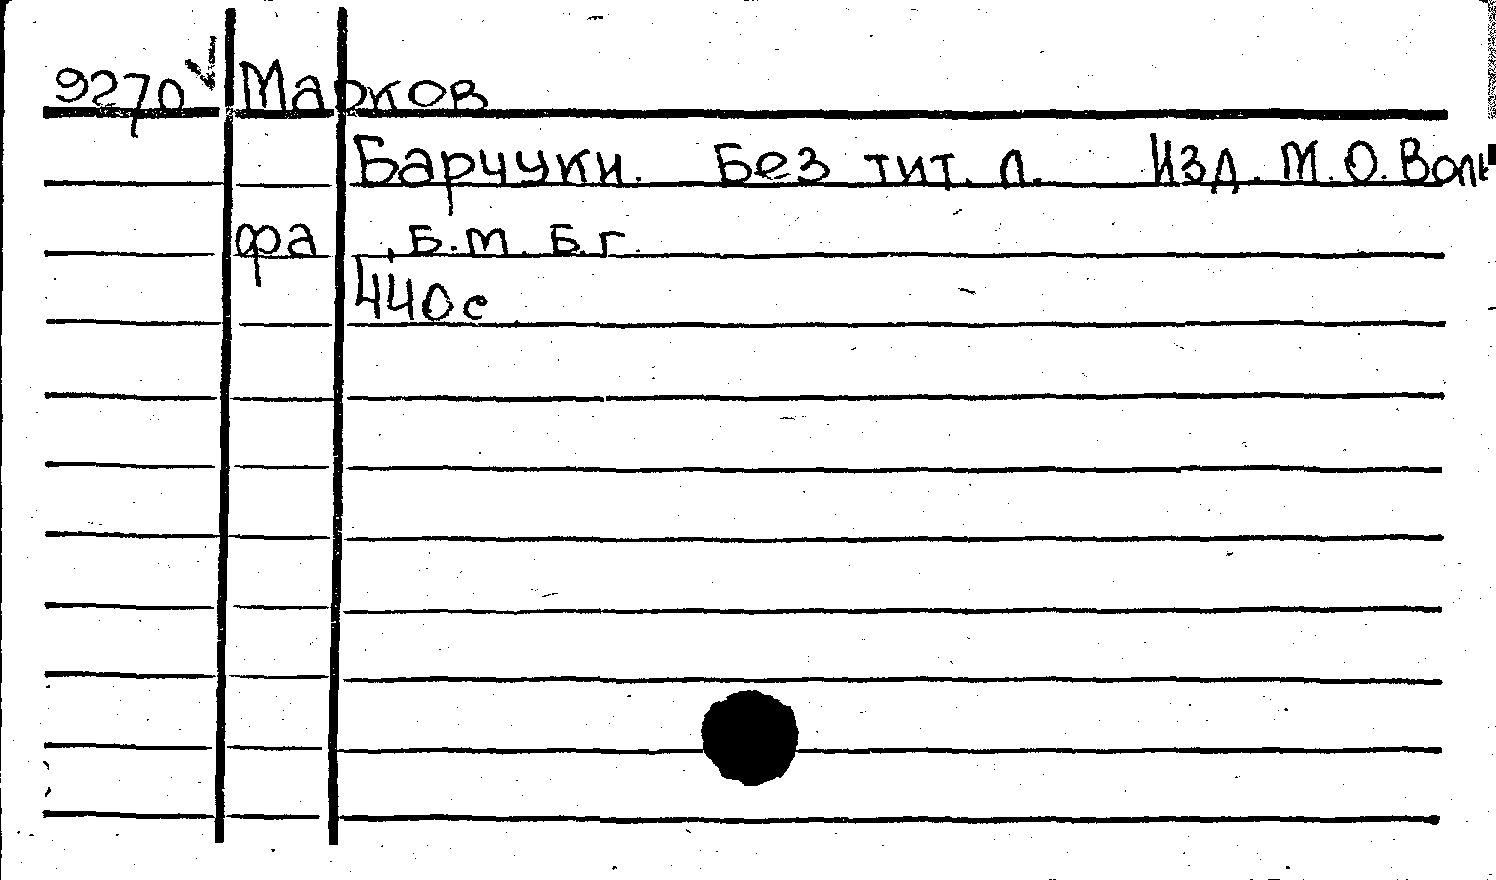 9270 Марков
Барчуки. Без тит. л. Изд. М.О. Воль
фа, Б.м. Б.г.
440с